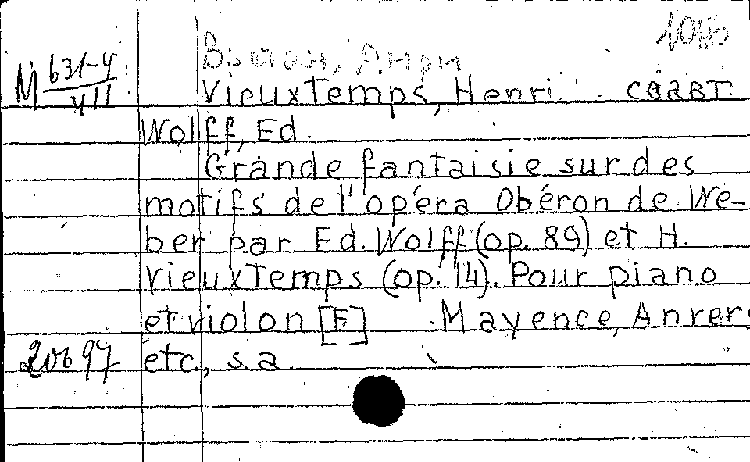 Вьетан, Анри
M 631-4/VII Vieuxtemps, Henri
Wolff, Ed.
Grande fantaisie sur des
motifs de l'opéra Obéron de We-
ber par Ed. Wolff (op. 89) et H.
Vieuxtemps (op. 14). Pour piano
et violon [F] Mayence, Anvers
20697 etc., s.a.